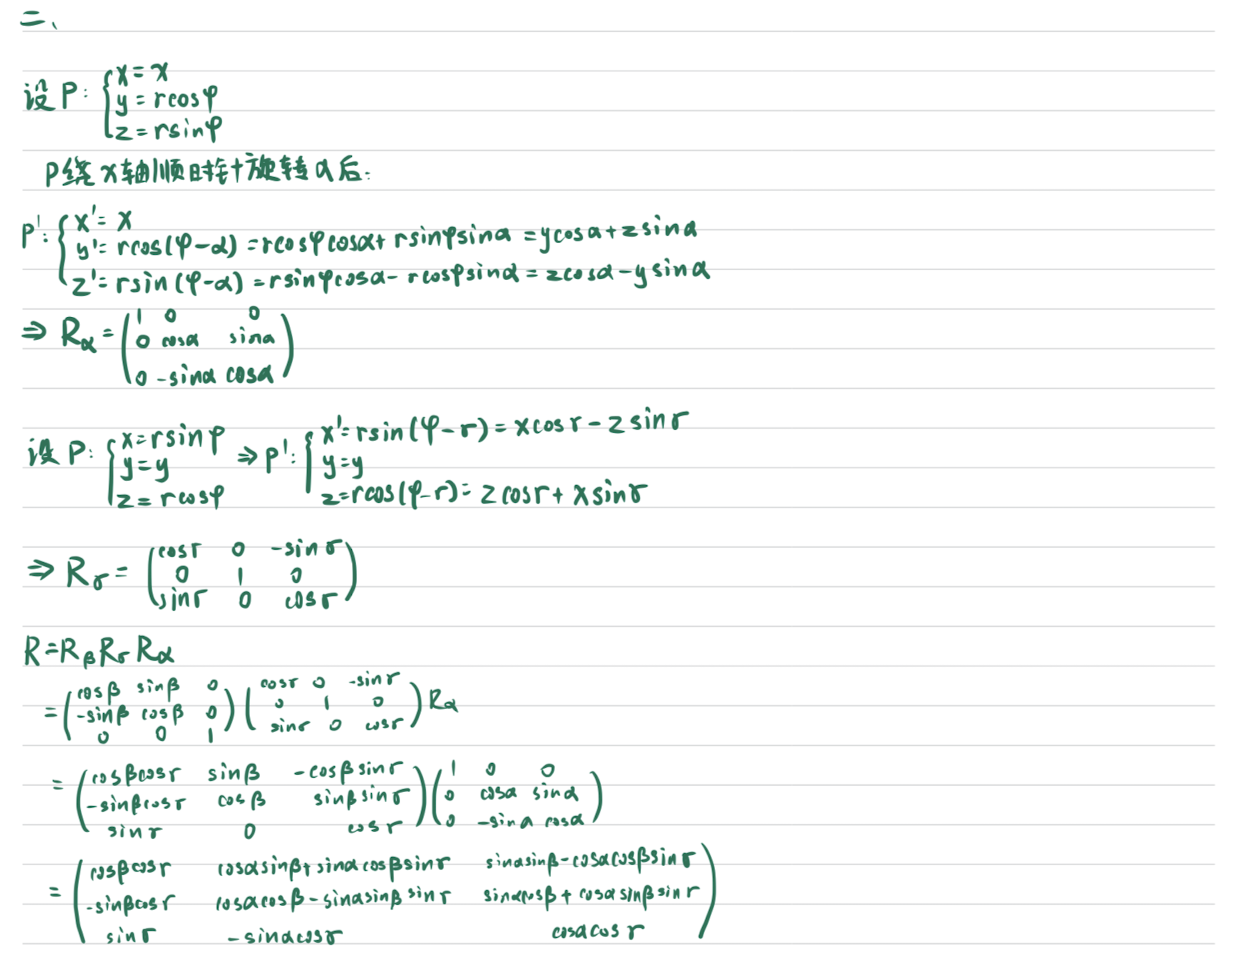 二、
设P: { x=x
y=rcosφ
z=rsinφ
P绕x轴顺时针旋转α后:
P': { x'=x
y'=rcos(φ-α)=rcosφcosα+rsinφsinα=ycosα+zsinα
z'=rsin(φ-α)=rsinφcosα-rcosφsinα=zcosα-ysinα
⇒ Rα = ( 1 0 0
0 cosα sinα
0 -sinα cosα )
设P: { x=rsinφ
y=y
z=rcosφ
⇒ P': { x'=rsin(φ-r)=xcosr-zsinr
y=y
z=rcos(φ-r)=zcosr+xsinr
⇒ Rr = ( cosr 0 -sinr
0 1 0
sinr 0 cosr )
R=RβRrRα
= ( cosβ sinβ 0
-sinβ cosβ 0
0 0 1 ) ( cosr 0 -sinr
0 1 0
sinr 0 cosr ) Rα
= ( cosβcosr sinβ -cosβsinr
-sinβcosr cosβ sinβsinr
sinr 0 cosr ) ( 1 0 0
0 cosα sinα
0 -sinα cosα )
= ( cosβcosr cosαsinβ+sinαcosβsinr sinαsinβ-cosαcosβsinr
-sinβcosr cosαcosβ-sinαsinβsinr sinαcosβ+cosαsinβsinr
sinr -sinαcosr cosαcosr )